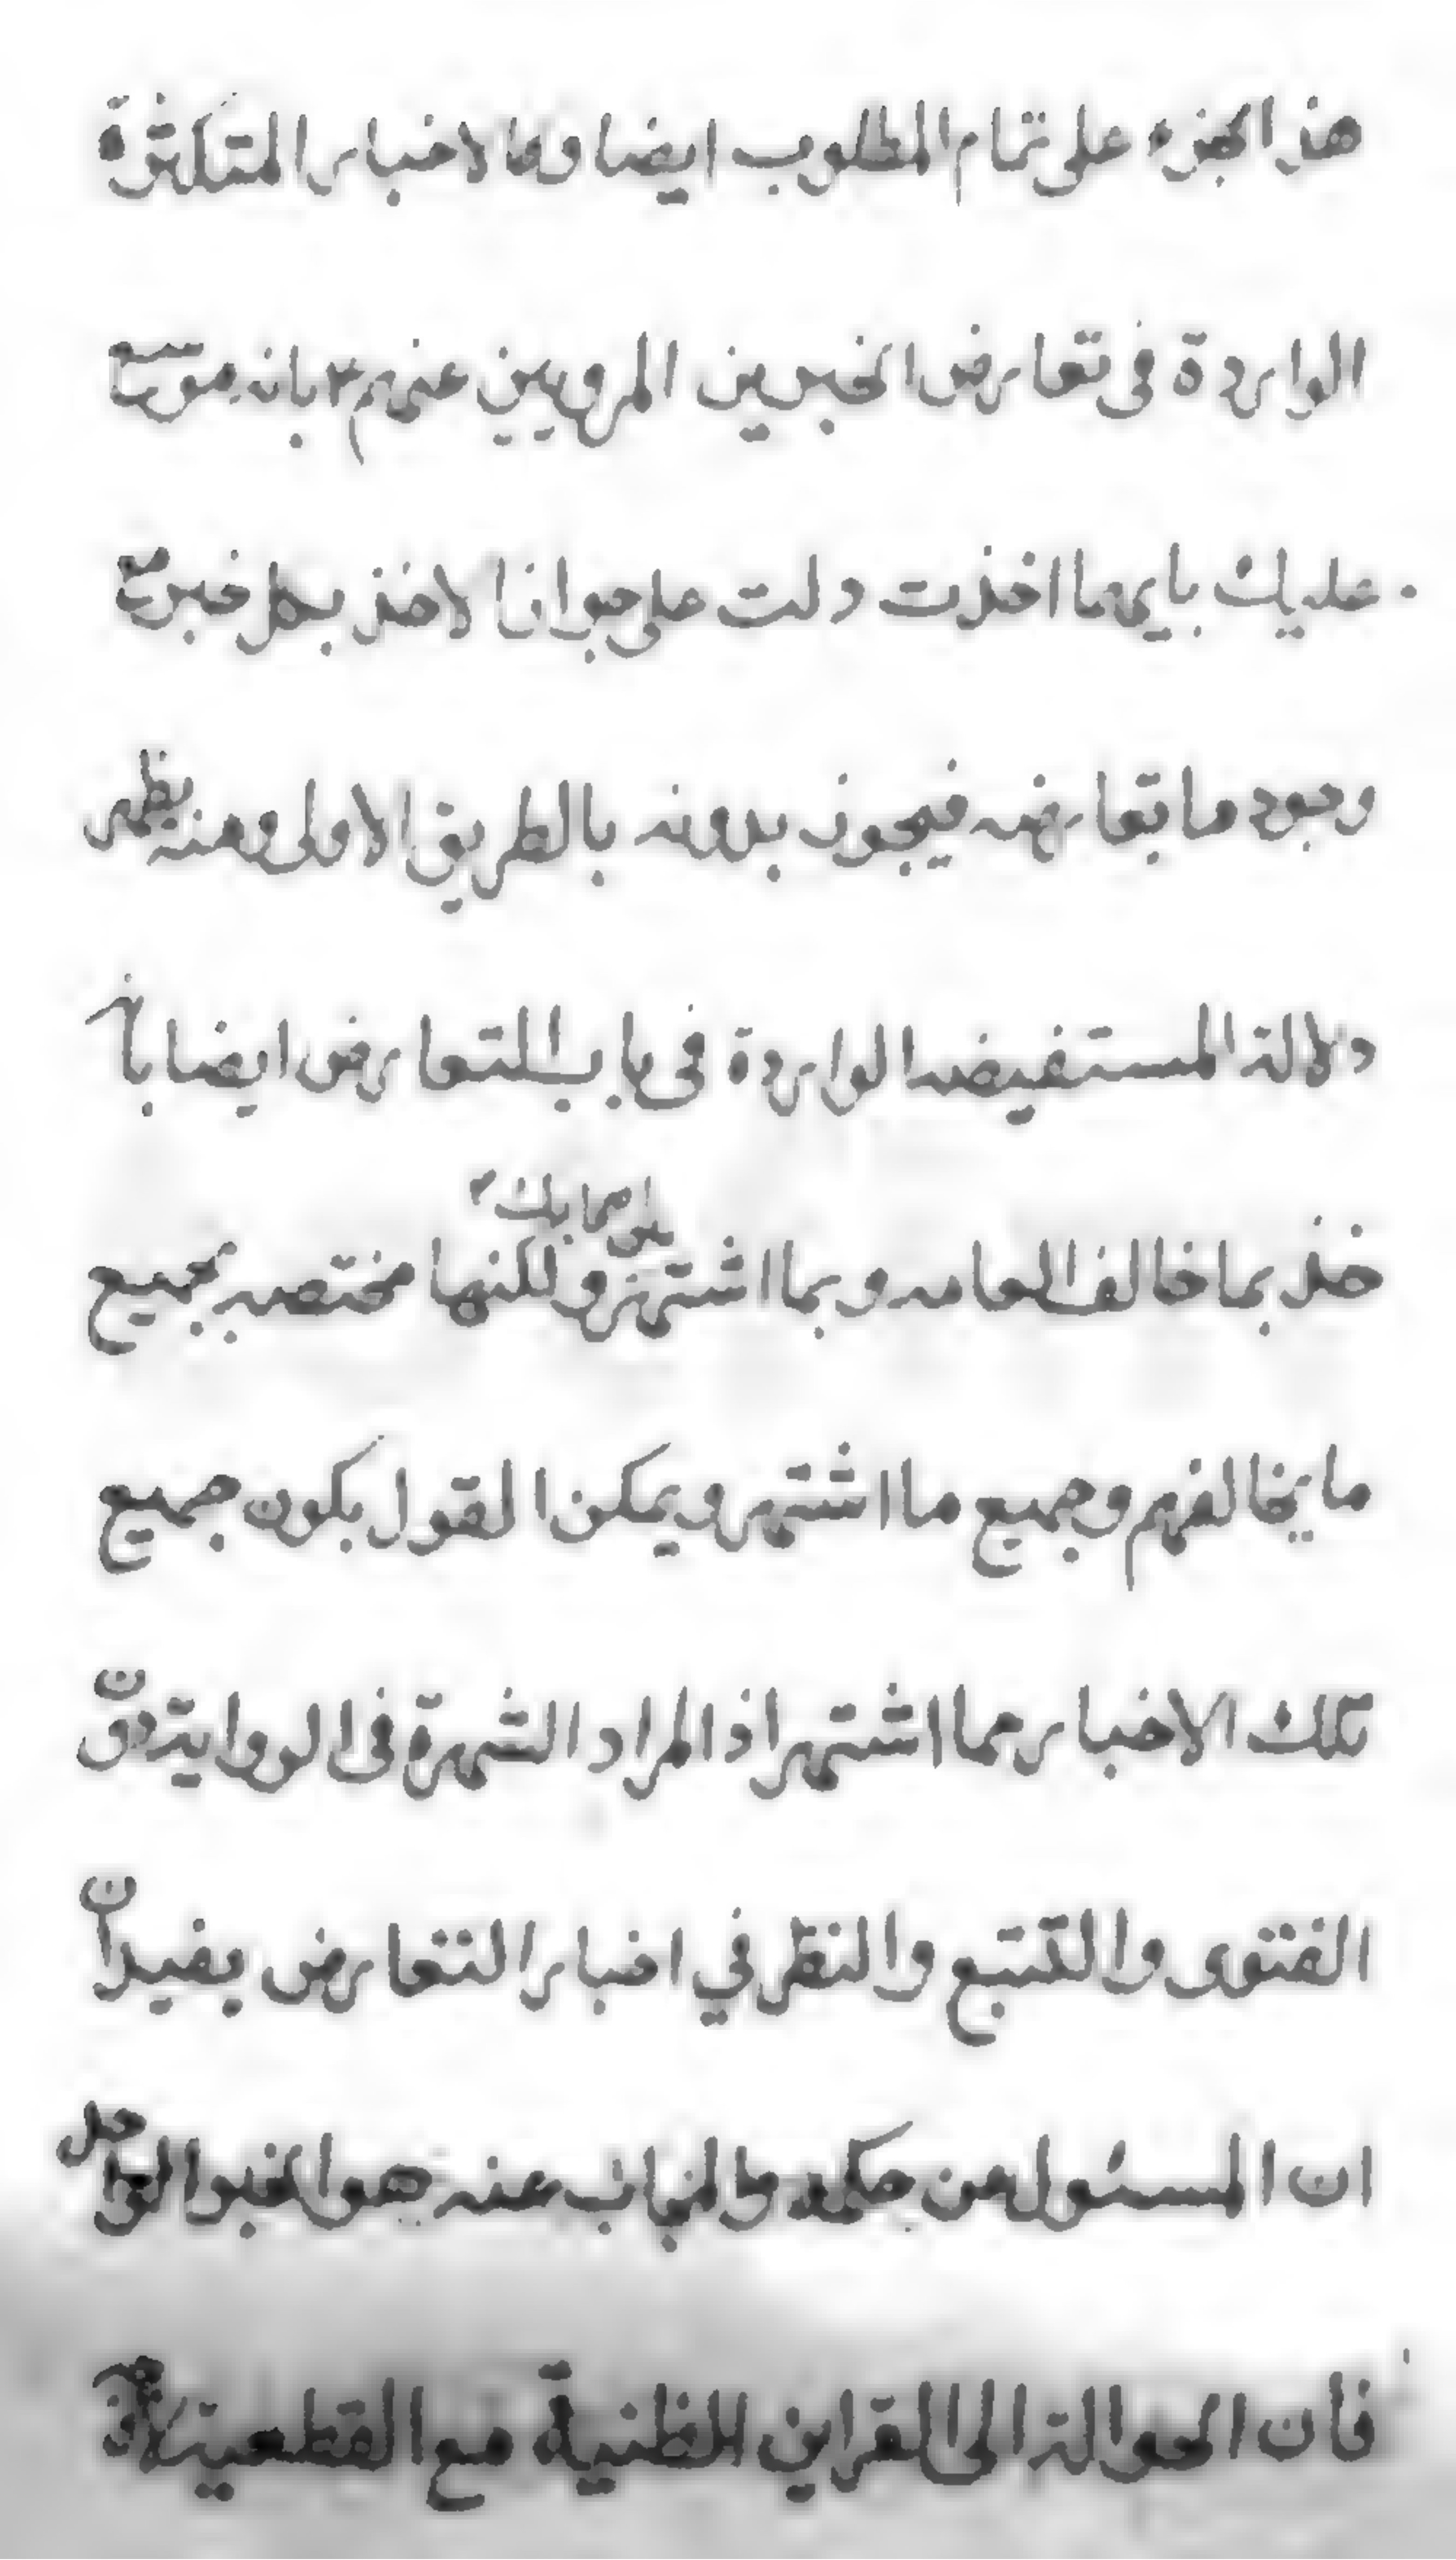 هذا الجزء على تمام المطلوب ايضا وكالاخبار المتكثرة
الواردة فى تعارض الخبرين المرويين عنهم ع بانه موسع
عليك بايهما اخذت دلت على جواز الاخذ بكل خبر مع
وجود ما يعارضه فيجوز بدونه بالطريق الاولى ومنه يظهر
دلالة المستفيضه الواردة فى باب التعارض ايضا بالاخذ
خذ بما خالف العامه وبما اشتهر ولكنها مختصه بجميع
بين اصحابك
ما يخالفهم وجميع ما اشتهر ويمكن القول بكون جميع
تلك الاخبار مما اشتهر اذ المراد الشهرة فى الرواية دون
الفتوى والتتبع والنظر في اخبار التعارض يفيد ان
ان المسئول عن حكمه والمجاب عنه هو الخبر الواحد
فان الحوالة الى القراين الظنية مع القطعية